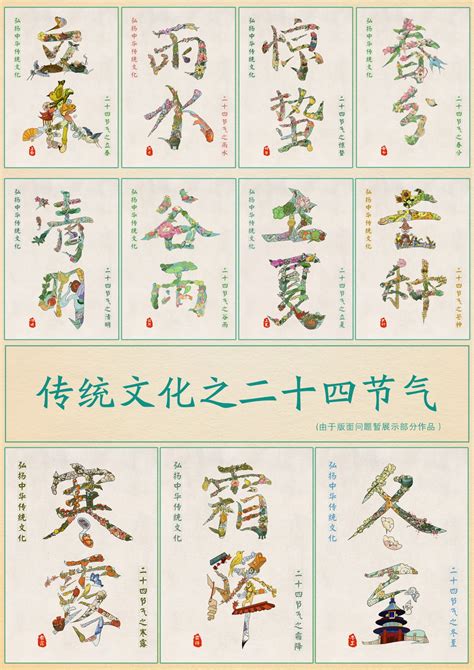 弘扬中华传统文化
立春
二十四节气之立春
弘扬中华传统文化
雨水
二十四节气之雨水
弘扬中华传统文化
惊蛰
二十四节气之惊蛰
弘扬中华传统文化
春分
二十四节气之春分
弘扬中华传统文化
清明
二十四节气之清明
弘扬中华传统文化
谷雨
二十四节气之谷雨
弘扬中华传统文化
立夏
二十四节气之立夏
弘扬中华传统文化
芒种
二十四节气之芒种
传统文化之二十四节气
(由于版面问题暂展示部分作品)
弘扬中华传统文化
寒露
二十四节气之寒露
弘扬中华传统文化
霜降
二十四节气之霜降
弘扬中华传统文化
冬至
二十四节气之冬至